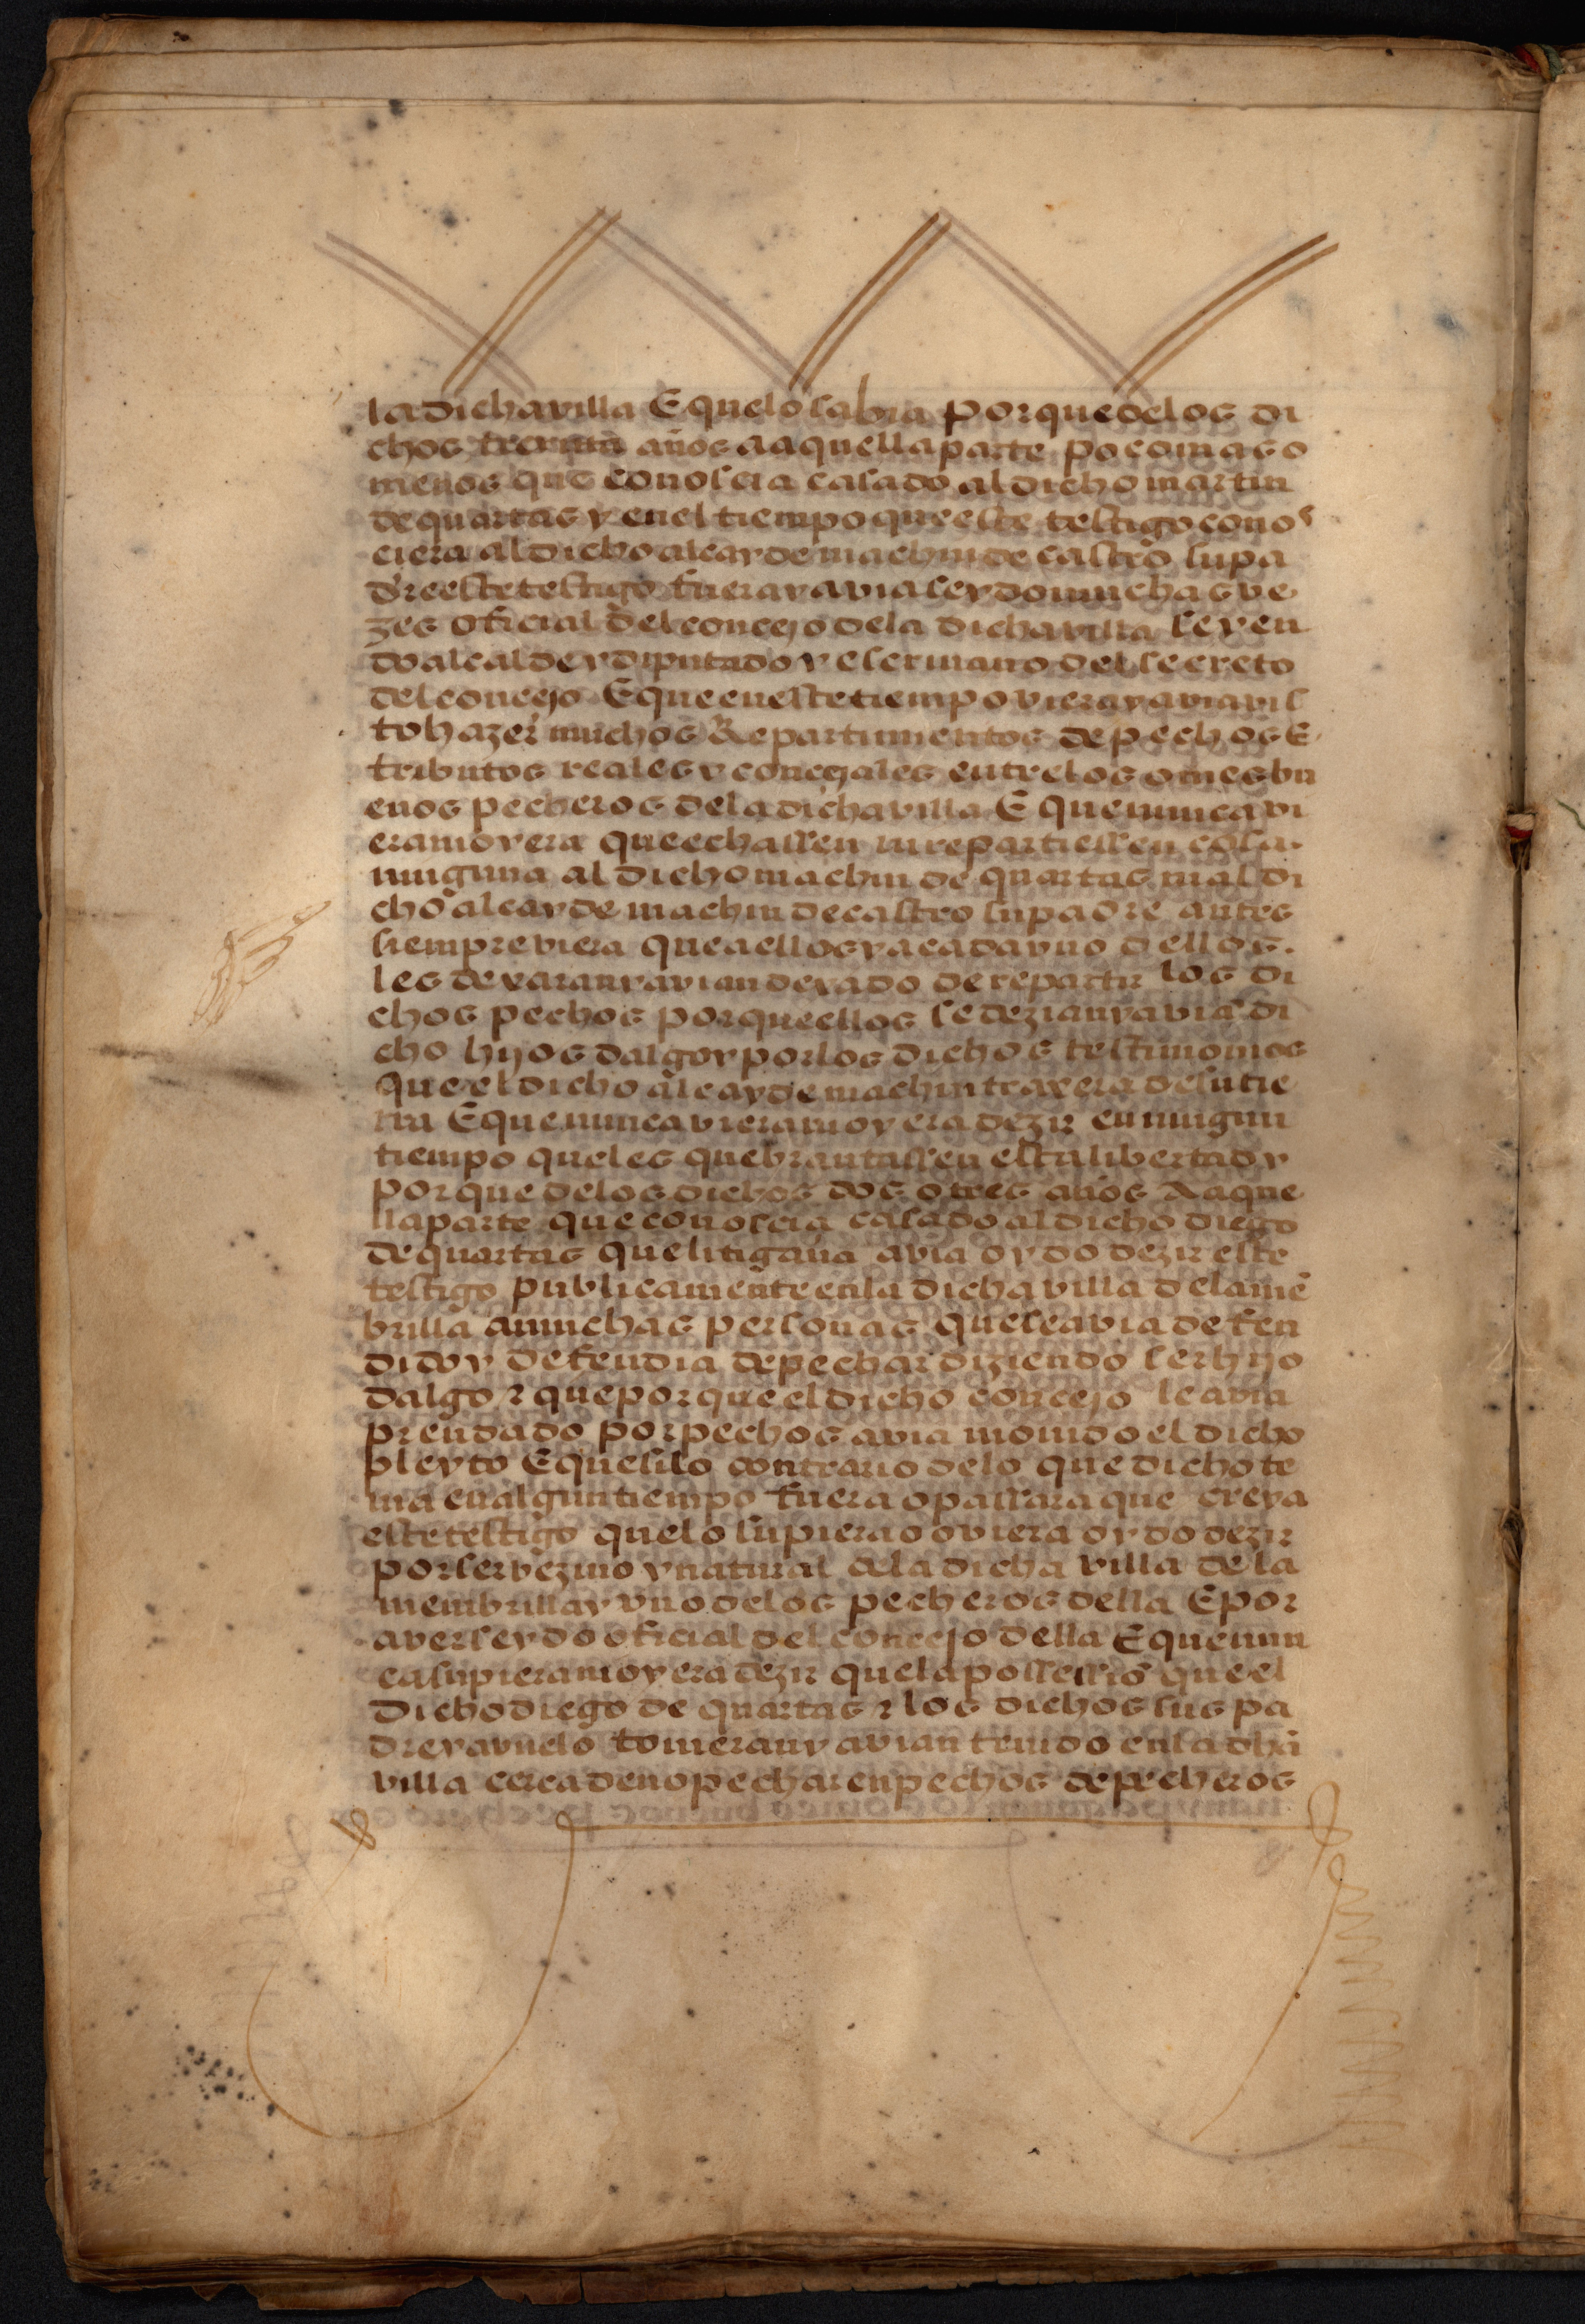 la dicha villa E que lo sabia porque de los di
chos treynta años a aquella parte poco mas o
menos que conoscia casado al dicho martin
de quartas y en el tiempo que este testigo conos
ciera al dicho alcayde machin de castro su pa
dre este testigo fuera y avia seydo muchas ve
zes oficial del concejo de la dicha villa seyen
do alcalde y diputado y escrivano del secreto
del concejo E que en este tiempo viera y avia vis
to hazer muchos Repartimientos de pechos E
tributos reales y concejales entre los omes bu
enos pecheros de la dicha villa E que nunca vi
era ni oyera que echassen ni repartiessen cosa
ninguna al dicho machin de quartas ni al di
cho alcayde machin de castro su padre antes
siempre viera que a ellos y a cada vno dellos
les dexaran y avian dexado de repartir los di
chos pechos porque ellos se dezian y avia di
cho hijos dalgo y por los dichos testimonios
que el dicho alcayde machin traxera de su tie
rra E que nunca viera ni oyera dezir en ningun
tiempo que les quebrantassen esta libertad y
porque de los dichos dos o tres años A aque
lla parte que conoscia casado al dicho diego
de quartas que litigava avia oydo dezir este
testigo publicamente en la dicha villa de la mē
brilla a muchas personas que se avia defen
dido y defendia de pechar diziendo ser hijo
dalgo z que porque el dicho concejo le avia
prendado por pechos avia movido el dicho
pleyto E que si lo contrario de lo que dicho te
nia en algun tiempo fuera o passara que creya
este testigo que lo supiera o oviera oydo dezir
por ser vezino y natural de la dicha villa de la
membrilla y vno de los pecheros della E por
aver seydo oficial del concejo della E que nun
ca supiera ni oyera dezir que la possessiō que el
Dicho diego de quartas z los dichos sus pa
dre y avuelo tovieran y avian tenido en la dha
villa cerca de no pechar en pechos de pecheros